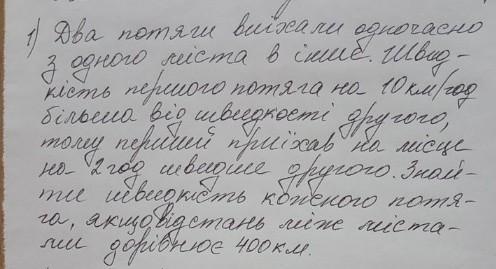 1) Два потяги виїхали одночасно
з одного міста в інше. Швид-
кість першого потяга на 10 км/год
більша від швидкості другого,
тому перший приїхав на місце
на 2 год швидше другого. Знай-
ти швидкість кожного потя-
га, якщо відстань між міста-
ми дорівнює 400 км.